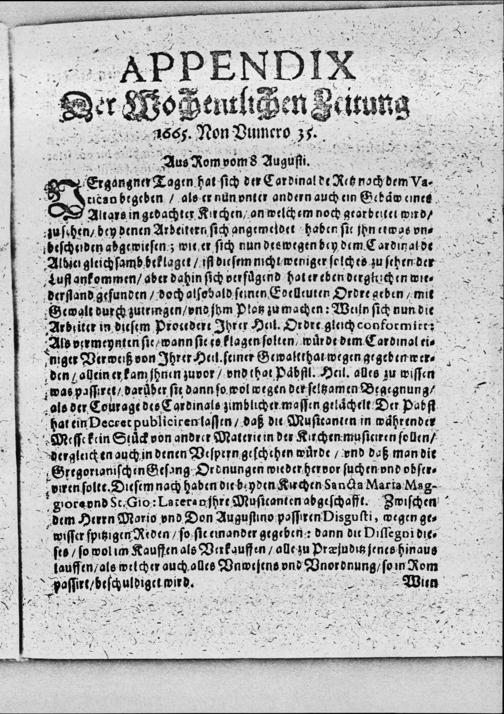 APPENDIX
Der Wöchentlichen Zeitung
1665. Non Numero 35.
Aus Rom vom 8 Augusti.
VErgangner Tagen hat sich der Cardinal de Retz nach dem Va-
tican begeben / als er nün unter andern auch ein Gebäw eines
Altars in gedachter Kirchen / an welchem noch gearbeitet wird /
zu sehen / bey denen Arbeitern sich angemeldet / haben sie ihn etwas vn-
bescheiden abgewiesen ; wie er sich nun deswegen bey dem Cardinal de
Albici gleichsamb beklaget / ist diesem nicht weniger solches zu sehen der
Lust ankommen / aber dahin sich verfügend hat er eben dergleichen wie-
derstand gefunden / doch alsobald seinen Edelleuten Ordre geben / mit
Gewalt durchzutringen / vnd ihm Platz zu machen : Weiln sich nun die
Arbeiter in diesem Procedere Ihrer Heil. Ordre gleich conformirt:
Als vermeynten sie / wann sie es klagen solten / würde dem Cardinal ei-
niger Verweiß von Ihrer Heil. seiner Gewaltthat wegen gegeben wer-
den / allein er kam ihnen zuvor / vnd that Päbstl. Heil. alles zu wissen
was passiret / darüber sie dann so wol wegen der seltzamen Begegnung /
als der Courage des Cardinals zimblicher massen gelächelt. Der Pabst
hat ein Decret publiciren lassen / daß die Musicanten in währender
Messe kein Stück von andrer Materie in der Kirchen musiciren sollen /
dergleichen auch in denen Vespern geschehen würde / vnd daß man die
Gregorianischen Gesang-Ordnungen wieder hervor suchen und obser-
viren solte. Diesem nach haben die beyden Kirchen Sancta Maria Mag-
giore vnd St. Gio: Lateran ihre Musicanten abgeschafft. Zwischen
dem Herrn Mario vnd Don Augustino passiren Disgusti, wegen ge-
wisser spitzigen Reden / so sie einander gegeben : dann die Dissegni die-
ses / so wol im Kauffen als Verkauffen / alle zu Præjuditz jenes hinaus
lauffen / als welcher auch alles Vnwesens vnd Vnordnung / so in Rom
passirt / beschuldiget wird.
Wien